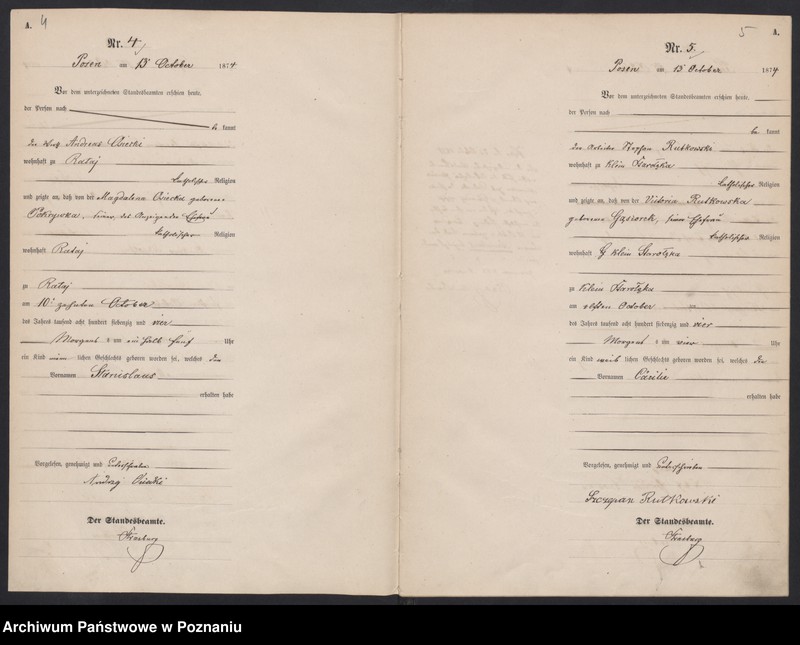 A. 4
Nr. 4
Posen am 13 October 1874
Vor dem unterzeichneten Standesbeamten erschien heute,
der Person nach
be kannt
der Andreas
wohnhaft zu Rataj
katholischer Religion
und zeigte an, daß von der Magdalena geborene
des Anzeigenden Ehefrau
katholischer Religion
wohnhaft Rataj
zu Rataj
am 10. zehnten October
des Jahres tausend acht hundert siebenzig und vier
Morgens um ein halb fünf Uhr
ein Kind männ lichen Geschlechts geboren worden sei, welches den
Vornamen Stanislaus
erhalten habe
Vorgelesen, genehmigt und unterschrieben
Andrzej
Der Standesbeamte.
5 A.
Nr. 5.
Posen am 13 October 1874
Vor dem unterzeichneten Standesbeamten erschien heute,
der Person nach
be kannt
der Stephan Rutkowski
wohnhaft zu Klein Starolęka
katholischer Religion
und zeigte an, daß von der Victoria Rutkowska
geborene Gąsiorek, seiner Ehefrau
katholischer Religion
wohnhaft Klein Starolęka
zu Klein Starolęka
am elften October
des Jahres tausend acht hundert siebenzig und vier
Morgens um vier Uhr
ein Kind weib lichen Geschlechts geboren worden sei, welches den
Vornamen Cäcilie
erhalten habe
Vorgelesen, genehmigt und unterschrieben
Szczepan Rutkowski
Der Standesbeamte.
Archiwum Państwowe w Poznaniu